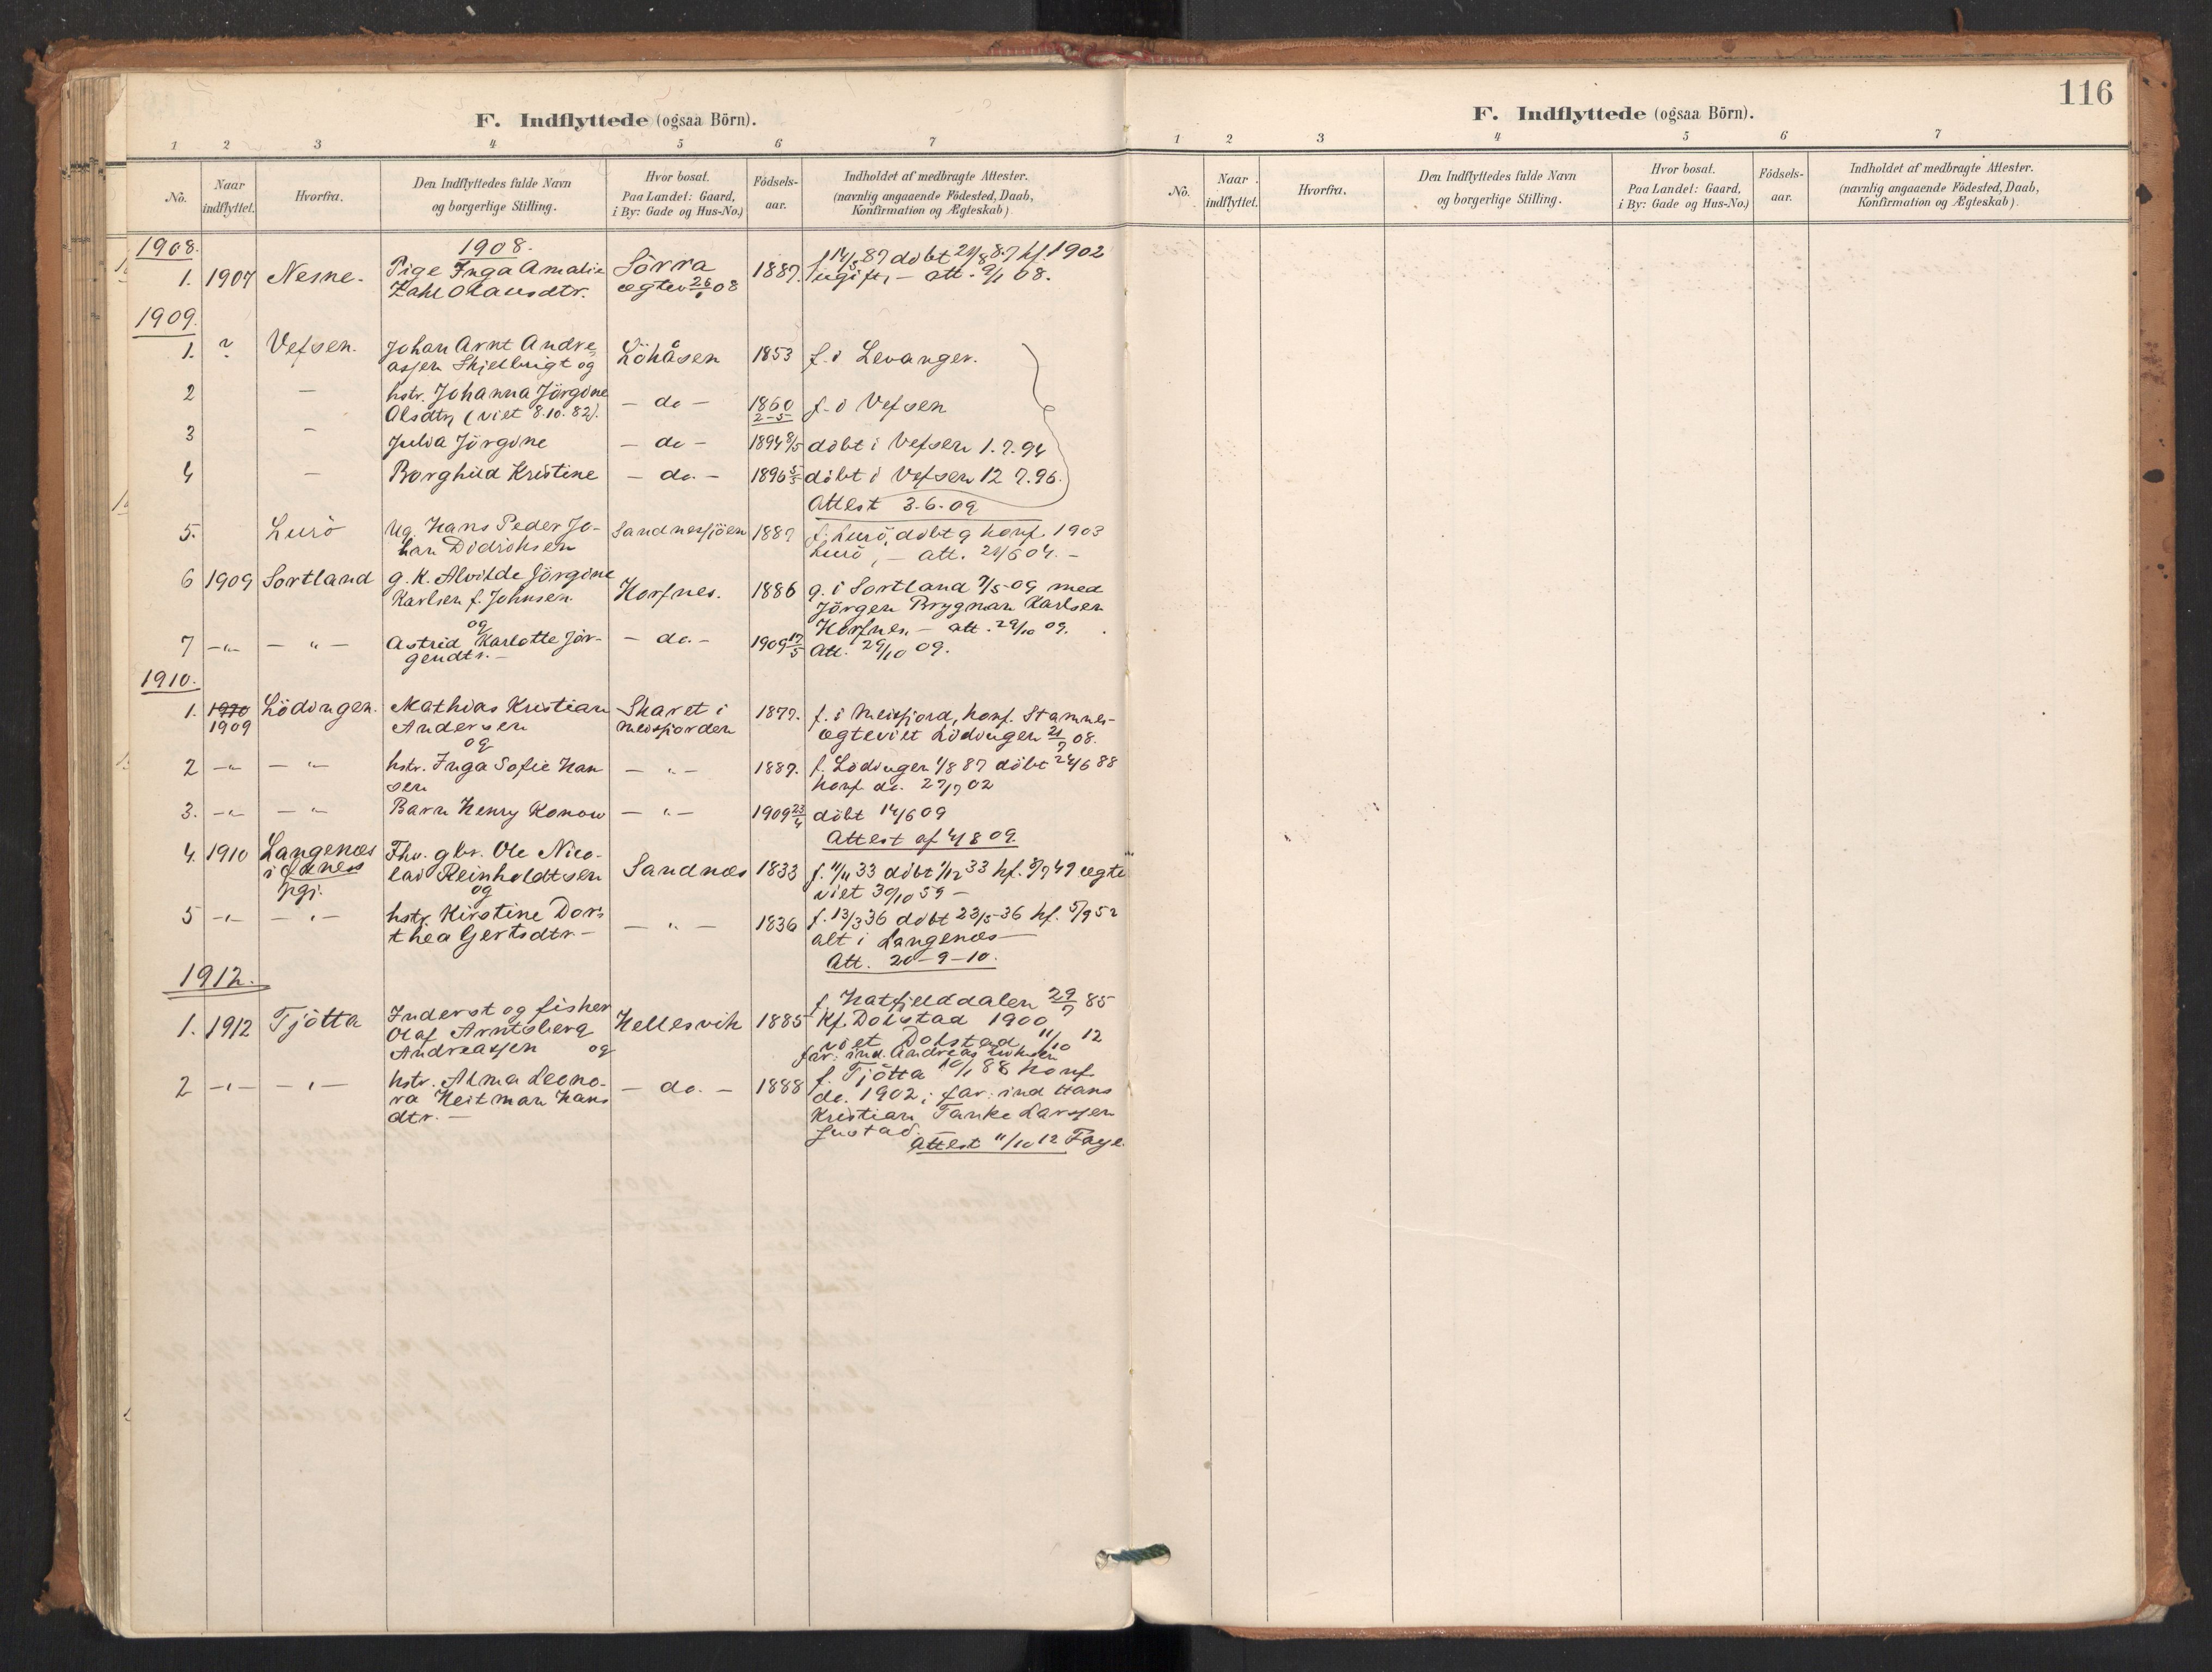 116
F. Indflyttede (ogsaa Börn).
1 2 3 4 5 6 7
No.
Naar indflyttet.
Hvorfra.
Den Indflyttedes fulde Navn
og borgerlige Stilling.
Hvor bosat.
Paa Landet: Gaard,
i By: Gade og Hus-No.)
Födsels-
aar.
Indholdet af medbragte Attester.
(navnlig angaaende Födested, Daab,
Konfirmation og Ægteskab)
1908. 1908.
1. 1907 Nesne. Pige Inga Amalie Sörra 1887. f 14/5 87 döbt 21/8 87 kf. 1902
Zahl Olausdtr. ægtev 26/ 08 ugift, — att. 9/1 08.
1909.
1. ? Vefsen. Johan Arnt Andre- Löhåsen 1853 f. i Levanger.
assen Skjelbrigt og
2 — hstr. Johanna Jörgine — do — 1860 f. i Vefsen
Olsdtr, (viet 8.10.82). 2-5
3 — Julia Jörgine — do — 1894 8/5 döbt i Vefsen 1.7.94
4 — Borghild Kristine — do. — 1896 5/5 döbt i Vefsen 12 7.96.
Attest 3-6-09
5. Lurö Ug. Hans Peder Jo- Sandnessjöen 1887 f. Lurö, döbt og konf. 1903
han Didriksen Lurö, — att. 21/6 04. —
6 1909 Sortland g. K. Alvilde Jörgine Horfnes. 1886 g. i Sortland 7/5 09 med
Karlsen f. Johnsen. Jörgen Brygman Karlsen
og Horfnes — att. 29/10 09.
7 —"— — " — Astrid Karlotte Jör- — do. — 1909 17/5 Att. 29/10 09.
gendtr. —
1910.
1. 1910 Lödingen. Mathias Kristian Skaret i 1877. f. i Meisfjord, konf. Stamnes-
1909 Andersen Meisfjorden ægteviet Lödingen 21/7 08.
og
2 —"— — " — hstr. Inga Sofie Han — " — 1887. f. Lödingen 1/8 87 döbt 24/6 88
sen konf. do. 27/7 02
3. —"— — " — Barn Henry Konow — " — 1909 23/4 döbt 14/6 09
Attest af 4/8 09.
4. 1910 Langenæs Fhv. gbr. Ole Nico- Sandnæs 1833 f. 11/11 33 döbt 1/12 33 kf. 8/7 49 ægte
i Öxnes lai Reinholdtsen viet 30/10 59 —
pgj. og
5 —"— — " — hstr. Kirstine Doro- — " — 1836 f. 13/3 36 döbt 23/5 36 kf. 5/9 52
thea Gertsdtr. — alt i Langenæs —
Att. 20-9-10.
1912.
1. 1912 Tjötta Inderst og fisker Hellesvik 1885 f. Hatfjelddalen 29/7 85
Olaf Arntsberg Kf. Dolstad 1900
Andreassen og viet Dolstad 11/10 12
far: ind. Andreas
2 —"— — " — hstr. Alma Leono- — do. — 1888 f. Tjötta 10/1 88 konf
ra Heitman Hans do. 1902; far: ind Hans
dtr. — Kristian Tanke Larssen
Attest 11/10 12 Faye.
F. Indflyttede (ogsaa Börn).
1 2 3 4 5 6 7
No.
Naar indflyttet.
Hvorfra.
Den Indflyttedes fulde Navn
og borgerlige Stilling.
Hvor bosat.
Paa Landet: Gaard,
i By: Gade og Hus-No.)
Födsels-
aar.
Indholdet af medbragte Attester.
(navnlig angaaende Födested, Daab,
Konfirmation og Ægteskab).